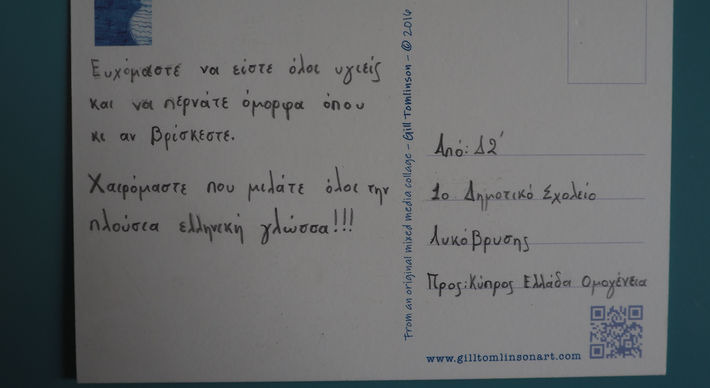 Ευχόμαστε να είστε όλοι υγιείς
και να περνάτε όμορφα όπου
κι αν βρίσκεστε.
Χαιρόμαστε που μιλάτε όλοι την
πλούσια ελληνική γλώσσα!!!
From an original mixed media collage – Gill Tomlinson – © 2016
Από: Δ2'
1ο Δημοτικό Σχολείο
Λυκόβρυσης
Προς: Κύπρος Ελλάδα Ομογένεια
www.gilltomlinsonart.com